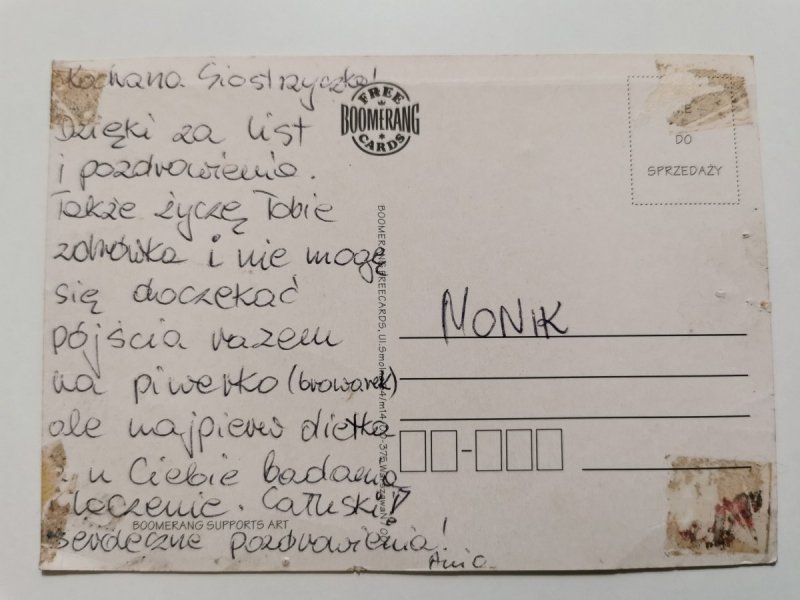 Kochana Siostrzyczko!
Dzięki za list
i pozdrowienia.
Także życzę Tobie
zdrówka i nie mogę
się doczekać
pójścia razem
na piwerko (browarek)
ale najpierw dietka
u Ciebie badania
i leczenie. Całuski
serdeczne pozdrowienia!
Ania
FREE
BOOMERANG
CARDS
DO
SPRZEDAŻY
MONIK
BOOMERANG SUPPORTS ART
BOOMERANG FREECARDS, Ul.